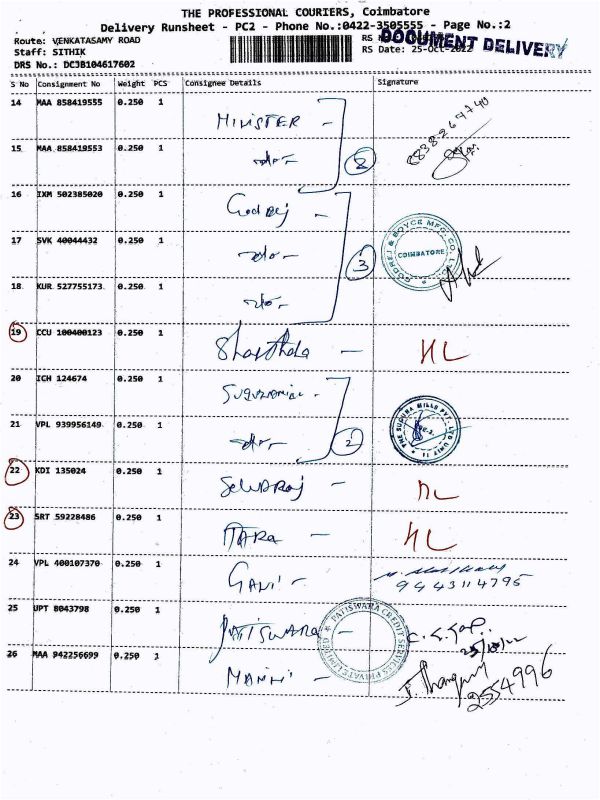 THE PROFESSIONAL COURIERS, Coimbatore
Delivery Runsheet - PC2 - Phone No.:0422-3505555 - Page No.:2
Route: VENKATASAMY ROAD
Staff: SITHIK
DRS No.: DC3B104617602
RS
RS Date: 25-Oct-2022
DOCUMENT DELIVERY
S No Consignment No Weight PCS Consignee Details Signature
14 MAA 858419555 0.250 1 MINISTER -
8838269740
15 MAA 858419553 0.250 1
2
16 IXM 502385020 0.250 1 Godrej -
17 SVK 40044432 0.250 1
3
GODREJ & BOYCE MFG. CO. LTD.
COIMBATORE
18 KUR 527755173 0.250 1
19 CCU 100400123 0.250 1 - NL
20 ICH 124674 0.250 1
21 VPL 939956149 0.250 1
2
THE SUGUNA MILLS PVT. LTD UNIT II
22 KDI 135024 0.250 1 Selvaraj - NL
23 SRT 59228486 0.250 1 - NL
24 VPL 400107370 0.250 1 GANI -
9443114795
25 UPT 8043798 0.250 1 PATISWARA -
PATISWARA CREDIT SERVICES PRIVATE LIMITED
25/10/22
26 MAA 942256699 0.250 1 MANNI -
2554996